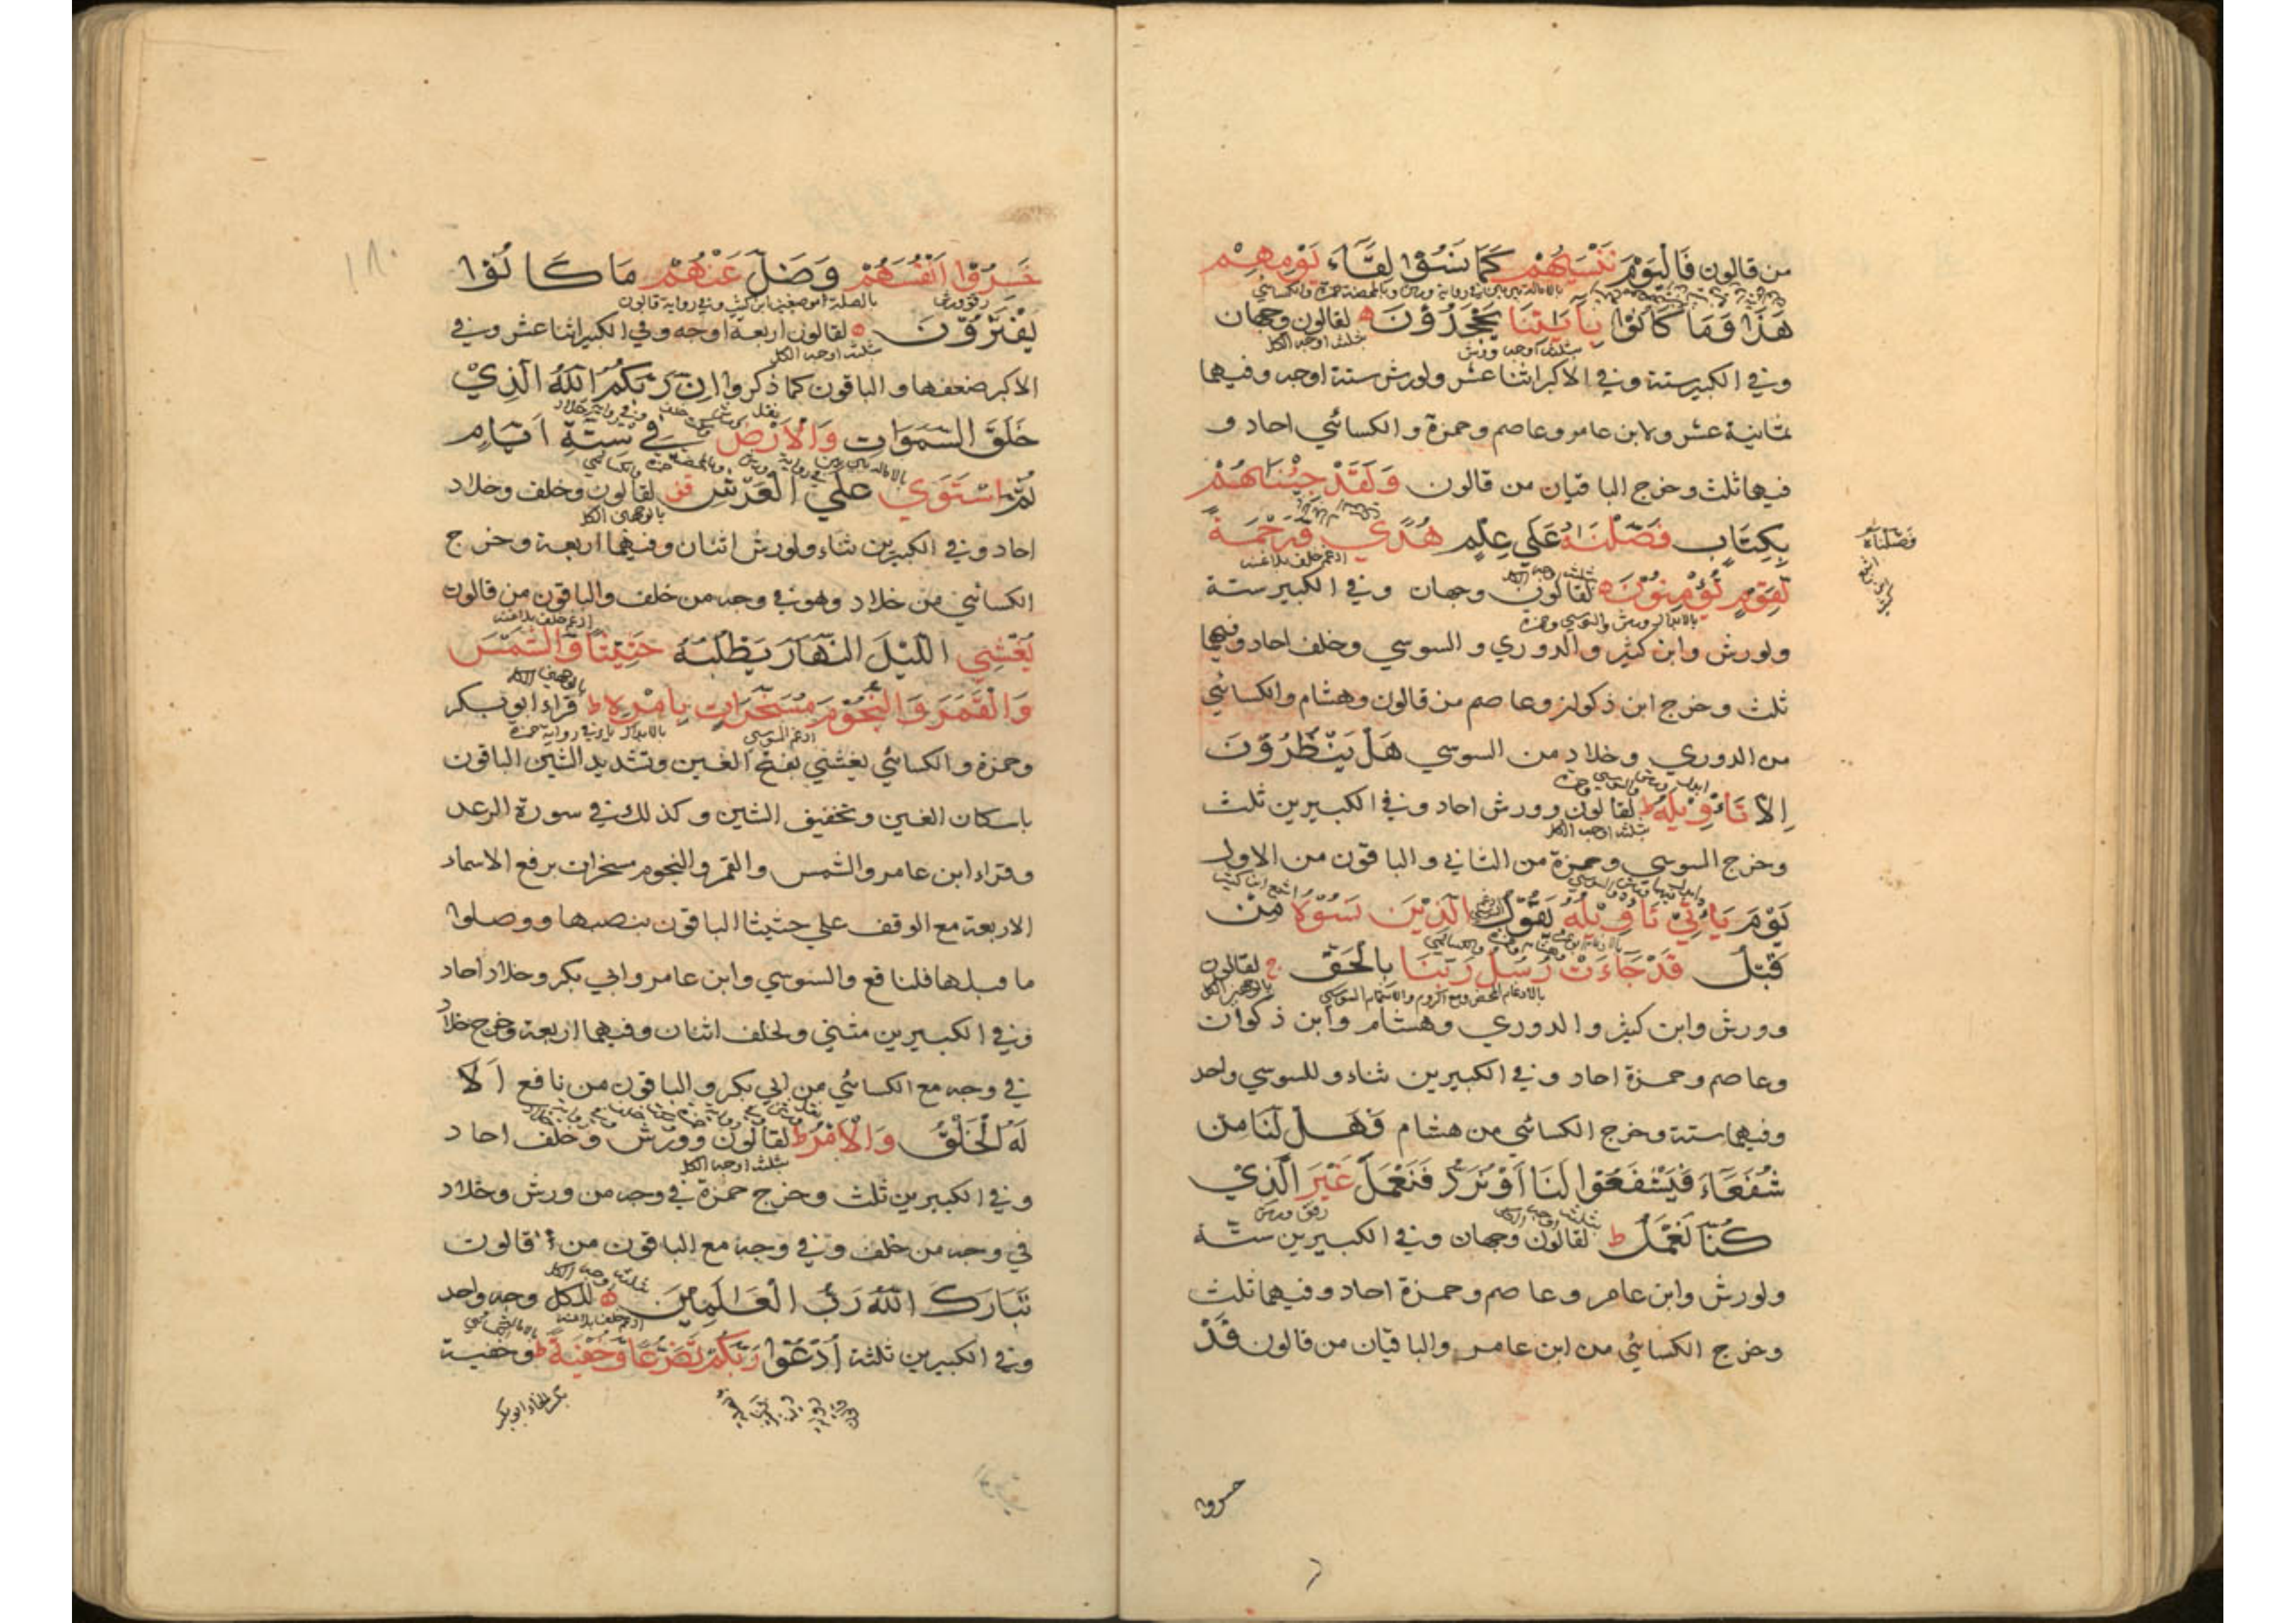 من قالون فَالْيَوْمَ نَنْسٰيهُمْ كَمَا نَسُوْا لِقَآءَ يَوْمِهِمْ
هٰذَا وَمَا كَانُوْا بِاٰيٰتِنَا يَجْحَدُوْنَ ه لقالون وجهان
ثلثة اوجه ورش ثلثة اوجه الكل
وفي الكبير ستة وفي الاكبر اثنا عشر ولورش ستة اوجه وفيهما
ثمانية عشر ولابن عامر وعاصم وحمزة والكسائي احاد و
فيها ثلث وخرج الباقيان من قالون وَلَقَدْ جِئْنٰاهُمْ
بِكِتَابٍ فَصَّلْنٰهُ عَلٰي عِلْمٍ هُدًي وَّرَحْمَةً
فصّلناه
ادغم خلف بلاغنه
لِقَوْمٍ يُّؤْمِنُوْنَ ه لقالون وجهان وفي الكبير ستة
بالابدال ورش والسوسي وحمزة
ولورش وابن كثير والدوري والسوسي وخلف احاد وفيهما
ثلث وخرج ابن ذكوان وعاصم من قالون وهشام والكسائي
من الدوري وخلاد من السوسي هَلْ يَنْظُرُوْنَ
اِلَّا تَاْوِيْلَهُ ط لقالون وورش احاد وفي الكبيرين ثلث
ثلثة اوجه الكل
وخرج السوسي وحمزة من الثاني والباقون من الاول
يَوْمَ يَاْتِيْ تَاْوِيْلُهُ يَقُوْلُ الَّذِيْنَ نَسُوْهُ مِنْ
قَبْلُ قَدْ جَآءَتْ رُسُلُ رَبِّنَا بِالْحَقِّ ج لقالون
بالادغام المحض ومع الروم والاشمام السوسي بالوجهين الكل
وورش وابن كثير والدوري وهشام وابن ذكوان
وعاصم وحمزة احاد وفي الكبيرين ثناء وللسوسي واحد
وفيهما ستة وخرج الكسائي من هشام فَهَلْ لَنَا مِنْ
شُفَعَآءَ فَيَشْفَعُوْا لَنَا اَوْ نُرَدُّ فَنَعْمَلَ غَيْرَ الَّذِيْ
رقق ورش
كُنَّا نَعْمَلُ ط لقالون وجهان وفي الكبيرين ستة
ولورش وابن عامر وعاصم وحمزة احاد وفيهما ثلث
وخرج الكسائي من ابن عامر والباقيان من قالون قَدْ
خسروا
خَسِرُوْا اَنْفُسَهُمْ وَضَلَّ عَنْهُمْ مَا كَانُوْا
رقق ورش بالصلة ابن كثير وفي رواية قالون
يَفْتَرُوْنَ ه لقالون اربعة اوجه وفي الكبير اثنا عشر وفي
ثلثة اوجه الكل
الاكبر ضعفها والباقون كما ذكروا اِنَّ رَبَّكُمُ اللّٰهُ الَّذِيْ
خَلَقَ السَّمَوَاتِ وَالْاَرْضَ فِيْ سِتَّةِ اَيَّامٍ
ثُمَّ اسْتَوٰي عَلَي الْعَرْشِ قف لقالون وخلف وخلاد
بالوجهين الكل
احاد وفي الكبيرين ثناء ولورش اثنان وفيهما اربعة وخرج
الكسائي من خلاد وهو في وجه من خلف والباقون من قالون
ادغم خلف بلاغنه
يُغْشِي اللَّيْلَ النَّهَارَ يَطْلُبُهُ حَثِيْثًا وَّالشَّمْسَ
وَالْقَمَرَ وَالنُّجُوْمَ مُسَخَّرَاتٍ بِاَمْرِهِ ط قراء ابو بكر
ادغم السوسي
وحمزة والكسائي يغشّي بفتح الغين وتشديد الشين الباقون
باسكان الغين وتخفيف الشين وكذلك في سورة الرعد
وقراء ابن عامر والشمس والقمر والنجوم مسخرات برفع الاسماء
الاربعة مع الوقف علي حثيثا الباقون بنصبها ووصلوا
ما قبلها فلنافع والسوسي وابن عامر وابي بكر وخلاد احاد
وفي الكبيرين مثني ولخلف اثنان وفيهما اربعة وخرج خلاد
في وجه مع الكسائي من ابي بكر والباقون من نافع اَلَا
لَهُ الْخَلْقُ وَالْاَمْرُ ط لقالون وورش وخلف احاد
ثلثة اوجه الكل
وفي الكبيرين ثلث وخرج حمزة في وجه من ورش وخلاد
في وجه من خلف وفي وجه مع الباقون من قالون
ثلثة اوجه الكل
تَبَارَكَ اللّٰهُ رَبُّ الْعٰلَمِيْنَ ه للكل وجه واحد
ادغم خلف بلاغنه
وفي الكبيرين ثلثة اُدْعُوْا رَبَّكُمْ تَضَرُّعًا وَّخُفْيَةً ط وخفية
بكسر الخاء ابو بكر
١٨٠